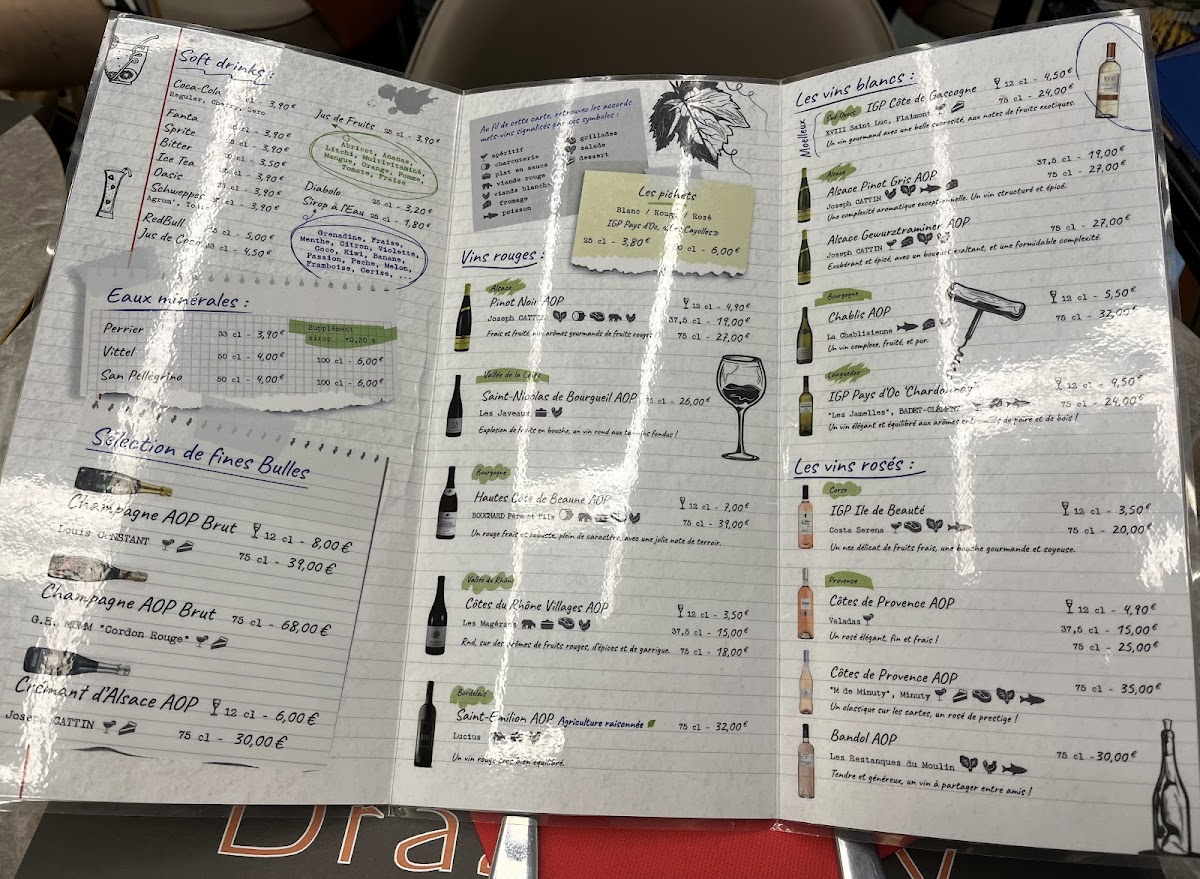 Soft drinks :
Coca-Cola 33 cl - 3,90€
Regular, Cherry, Zero
Fanta 3,90€
Sprite - 3,90€
Bitter - 3,50€
Ice Tea - 3,90€
Oasis - 3,90€
Schweppes cl - 3,90€
Agrum',
RedBull cl - 5,00€
Jus de Coco 33 cl - 4,50€
Jus de Fruits 25 cl - 3,90€
Abricot, Ananas,
Litchi, Multivitaminé,
Mangue, Orange, Pomme,
Tomate, Fraise
Diabolo 25 cl - 3,20€
Sirop à l'Eau 25 cl - 1,80€
Grenadine, Fraise,
Menthe, Citron, Violette,
Coco, Kiwi, Banane,
Passion, Pêche, Melon,
Framboise, Cerise, ...
Eaux minérales :
Supplément
sirop +0,30 €
Perrier 33 cl - 3,90€
Vittel 50 cl - 4,00€ 100 cl - 6,00€
San Pellegrino 50 cl - 4,00€ 100 cl - 6,00€
Sélection de fines Bulles
Champagne AOP Brut 12 cl - 8,00€
Louis CONSTANT 75 cl - 39,00€
Champagne AOP Brut 75 cl - 68,00€
G.H. MUMM "Cordon Rouge"
Crémant d'Alsace AOP 12 cl - 6,00€
Joseph CATTIN 75 cl - 30,00€
Au fil de cette carte, retrouvez les accords
mets-vins signalisés par ces symboles :
apéritif
charcuterie
plat en sauce
viande rouge
viande blanche
fromage
poisson
grillades
salade
dessert
Les pichets
Blanc / Rouge / Rosé
IGP Pays d'Oc, Cayolles»
25 cl - 3,80€ cl - 6,00€
Vins rouges :
Alsace
Pinot Noir AOP 12 cl - 4,90€
Joseph CATTIN 37,5 cl - 19,00€
Frais et fruité, aux arômes gourmands de fruits rouges ! 75 cl - 27,00€
Vallée de la Loire
Saint-Nicolas de Bourgueil AOP 75 cl - 26,00€
Les Javeaux
Explosion de fruits en bouche, un vin rond aux tannins fondus !
Bourgogne
Hautes Côte de Beaune AOP 12 cl - 7,00€
BOUCHARD Père et fils 75 cl - 39,00€
Un rouge frais et robuste, plein de caractère, avec une jolie note de terroir.
Vallée du Rhône
Côtes du Rhône Villages AOP 12 cl - 3,50€
Les Magérans 37,5 cl - 15,00€
Rnd, sur des arômes de fruits rouges, d'épices et de garrigue. 75 cl - 18,00€
Bordelais
Saint-Emilion AOP Agriculture raisonnée 75 cl - 32,00€
Lucius
Un vin rouge très bien équilibré.
Les vins blancs :
Moelleux
Sud-Ouest
IGP Côte de Gascogne 12 cl - 4,50€
XVIII Saint Luc, Plaimont 75 cl - 24,00€
Un vin gourmand avec une belle sucrosité, aux notes de fruits exotiques.
Alsace
Alsace Pinot Gris AOP 37,5 cl - 19,00€
Joseph CATTIN 75 cl - 27,00€
Une complexité aromatique exceptionnelle. Un vin structuré et épicé.
Alsace Gewurztraminer AOP 75 cl - 27,00€
Joseph CATTIN
Exubérant et épicé, avec un bouquet exaltant, et une formidable complexité.
Bourgogne
Chablis AOP 12 cl - 5,50€
La Chablisienne 75 cl - 32,00€
Un vin complexe, fruité, et pur.
Languedoc
IGP Pays d'Oc 'Chardonnay' 12 cl - 4,50€
"Les Jamelles", BADET-CLÉMENT 75 cl - 24,00€
Un vin élégant et équilibré aux arômes entremêlés de poire et de bois !
Les vins rosés :
Corse
IGP Ile de Beauté 12 cl - 3,50€
Costa Serena 75 cl - 20,00€
Un nez délicat de fruits frais, une bouche gourmande et soyeuse.
Provence
Côtes de Provence AOP 12 cl - 4,90€
Valadas 37,5 cl - 15,00€
Un rosé élégant, fin et frais ! 75 cl - 25,00€
Côtes de Provence AOP
"M de Minuty", Minuty 75 cl - 35,00€
Un classique sur les cartes, un rosé de prestige !
Bandol AOP 75 cl - 30,00€
Les Restanques du Moulin
Tendre et généreux, un vin à partager entre amis !